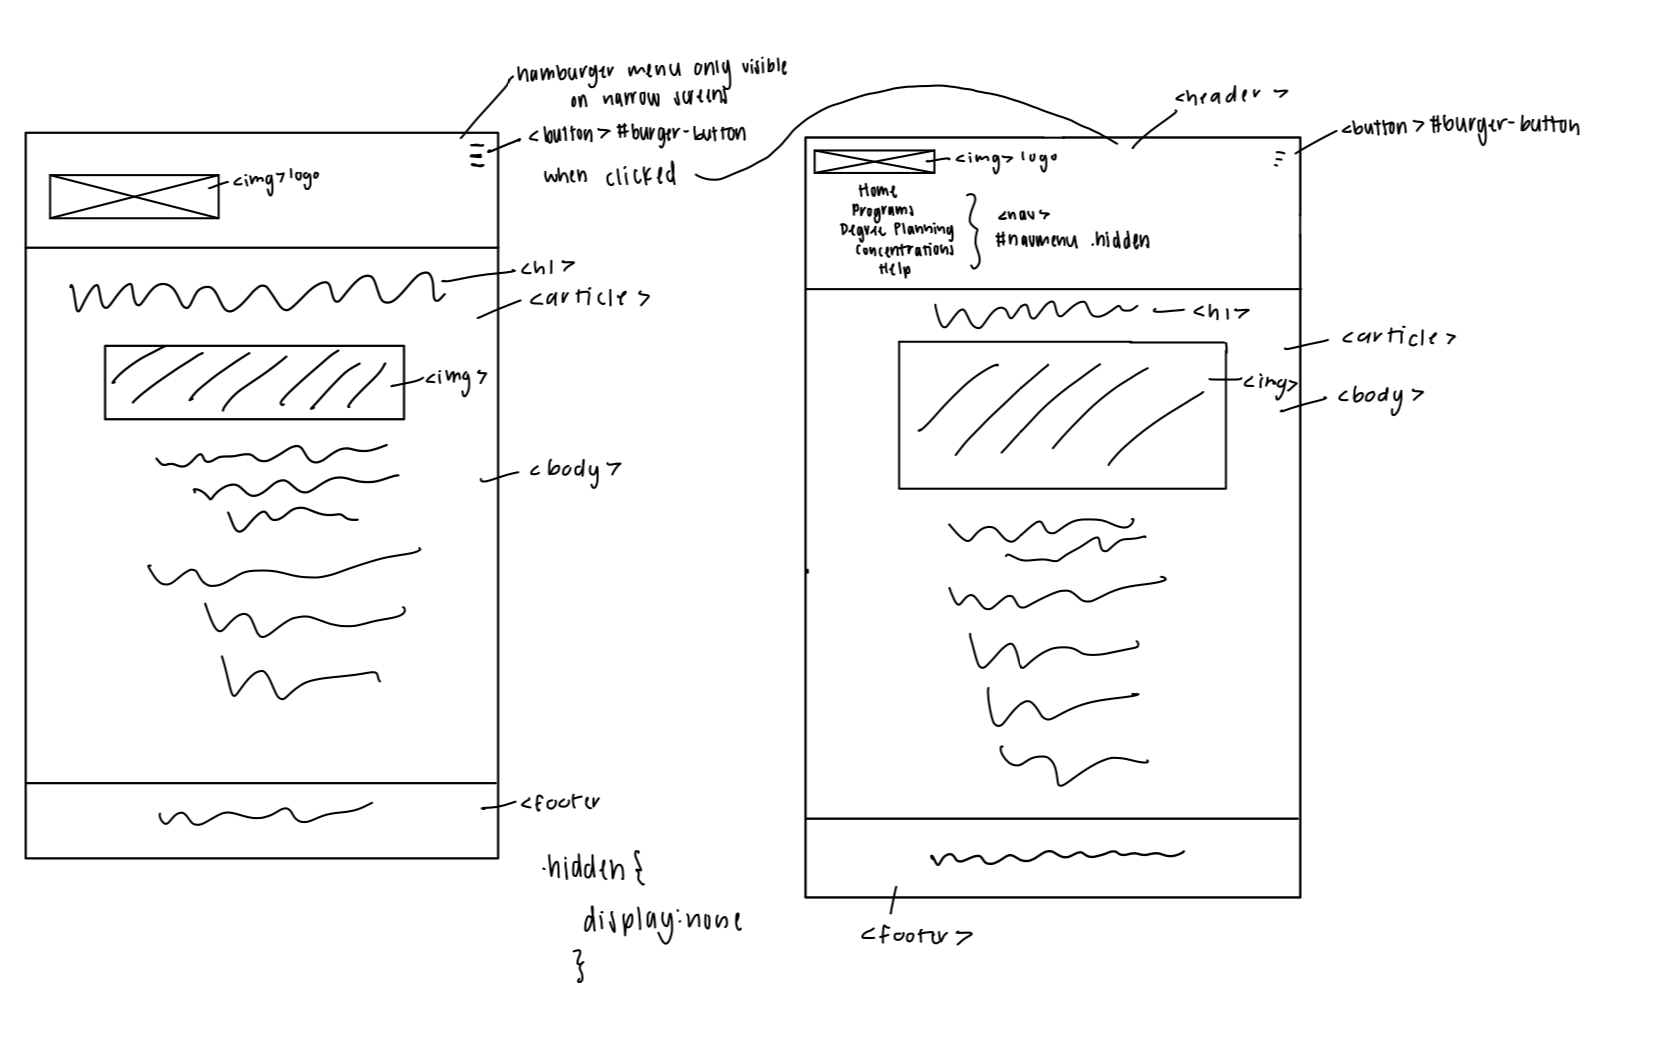 hamburger menu only visible
on narrow screens
<button> #burger-button
when clicked
<img> logo
<h1>
<article>
<img>
<body>
<footer
.hidden {
display:none
}
<header>
<button> #burger-button
<img> logo
Home
Programs
Degree Planning
Concentrations
Help
<nav>
#navmenu .hidden
<h1>
<article>
<img>
<body>
<footer>